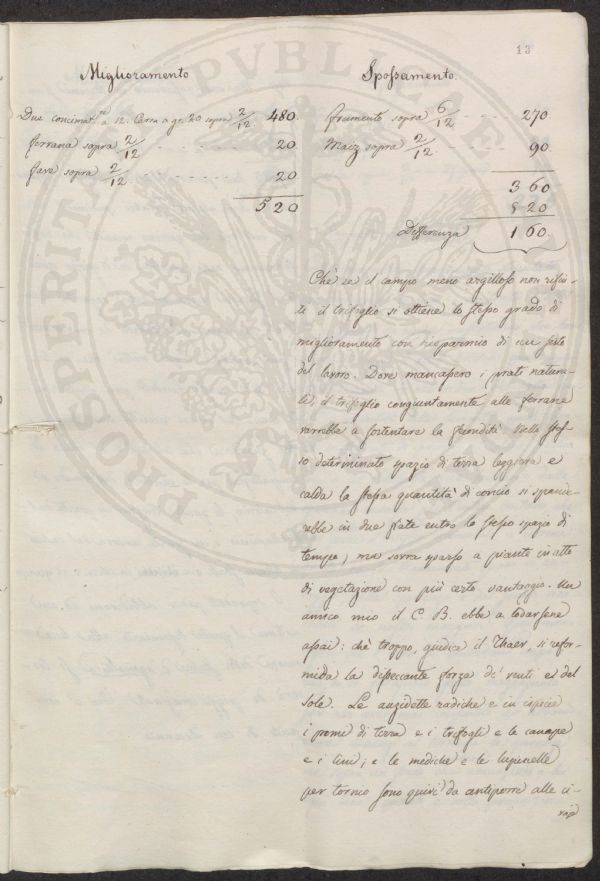 13
Miglioramento
Due concimat.re a 12. Carra a gr. 20 sopra 2/12. 480.
ferrana sopra 2/12 - - - - - - 20.
fave sopra 2/12 - - - - - - 20
520
Spossamento.
frumento sopra 6/12 - - - - 270
Maiz sopra 2/12 - - - - - 90.
360
520
Differenza 160.
Chè se il campo meno argilloso non rifiu-
ti il trifoglio si ottiene lo stesso grado di
miglioramento con risparmio di un sesto
del lavoro. Dove mancassero i prati natura-
li, il trifoglio congiuntamente alle ferrane
verrebbe a sostentare la fecondità. Nello stes-
so determinato spazio di terra leggiera e
calda la stessa quantità di concio si spande-
rebbe in due fiate entro lo stesso spazio di
tempo, ma sovra sparso a piante in atto
di vegetazione con più certo vantaggio. Un
amico mio il C. B. ebbe a lodarsene
assai: chè troppo, giudica il Thaer, si refor-
mida la disseccante forza de' venti e del
sole. Le anzidette radiche e in ispecie
i pomi di terra e i trifogli e le canape
e i lini; e le mediche e le lupinelle
per torno sono quivi da anteporre alle ci-
PROSPERITA PVBLICAE